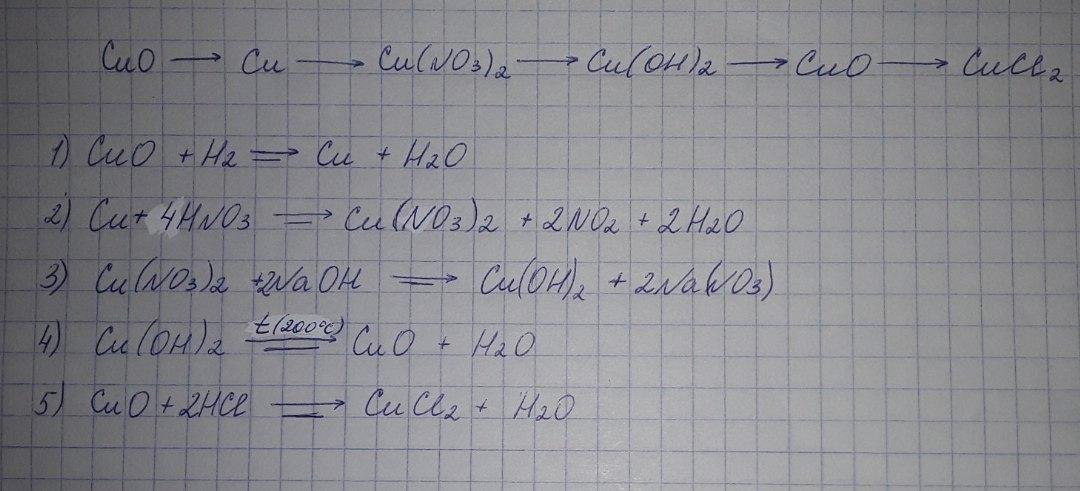 CuO → Cu → Cu(NO3)2 → Cu(OH)2 → CuO → CuCl2
1) CuO + H2 ⇒ Cu + H2O
2) Cu + 4HNO3 ⇒ Cu(NO3)2 + 2NO2 + 2H2O
3) Cu(NO3)2 + 2NaOH ⇒ Cu(OH)2 + 2Na(NO3)
4) Cu(OH)2 t(200°C)⇒ CuO + H2O
5) CuO + 2HCl ⇒ CuCl2 + H2O